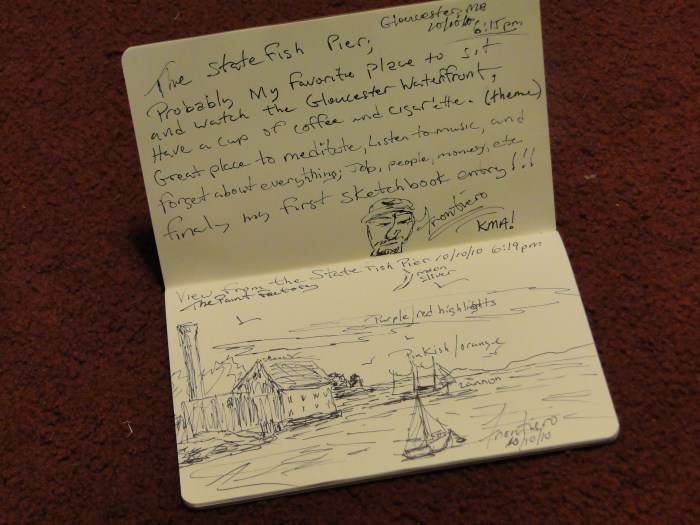 Gloucester, MA
10/10/10
6:15pm
The State Fish Pier,
Probably My favorite place to sit
and watch the Gloucester Waterfront,
Have a cup of coffee and cigarette. (theme)
Great place to meditate, Listen to music, and
forget about everything; Job, people, money, etc
finally my first sketchbook entry!!!
frontiero
KMA!
View from the State Fish Pier 10/10/10 6:19pm
The Paint Factory
moon
sliver
Purple/red highlights
Pinkish/orange
Lannon
frontiero
10/10/10